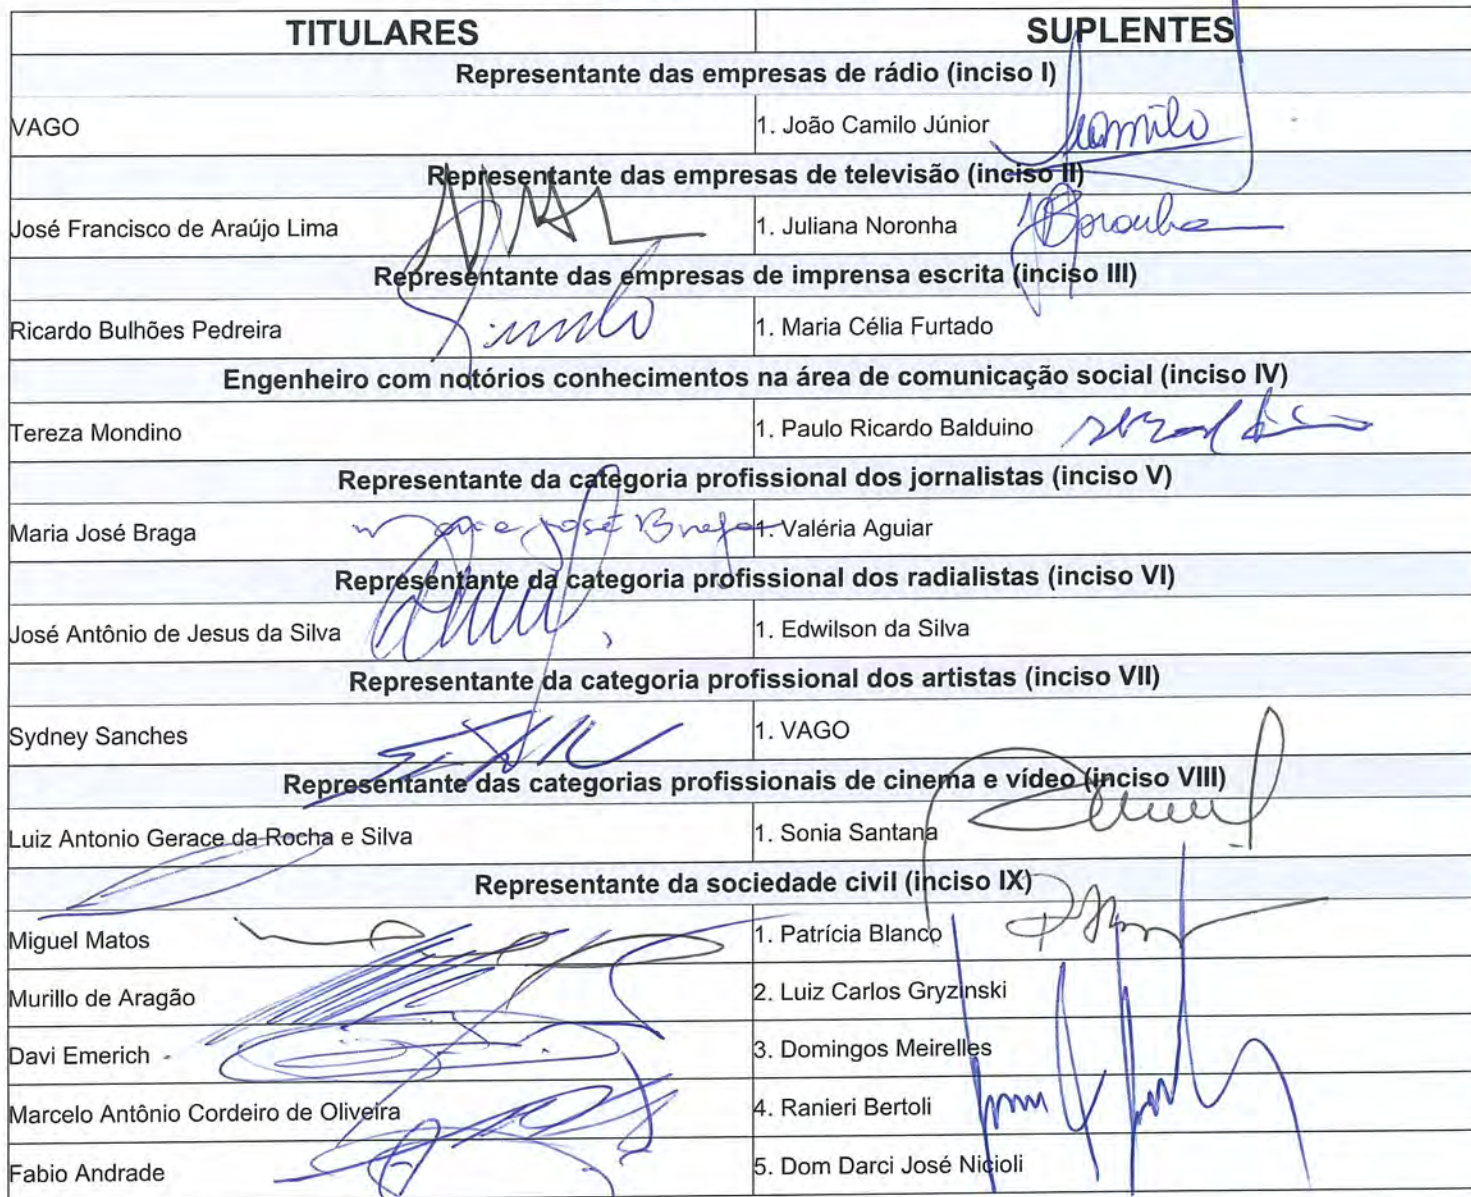 TITULARES SUPLENTES
Representante das empresas de rádio (inciso I)
VAGO 1. João Camilo Júnior Camilo
Representante das empresas de televisão (inciso II)
José Francisco de Araújo Lima 1. Juliana Noronha JNoronha
Representante das empresas de imprensa escrita (inciso III)
Ricardo Bulhões Pedreira 1. Maria Célia Furtado
Engenheiro com notórios conhecimentos na área de comunicação social (inciso IV)
Tereza Mondino 1. Paulo Ricardo Balduino
Representante da categoria profissional dos jornalistas (inciso V)
Maria José Braga Maria José Braga 1. Valéria Aguiar
Representante da categoria profissional dos radialistas (inciso VI)
José Antônio de Jesus da Silva 1. Edwilson da Silva
Representante da categoria profissional dos artistas (inciso VII)
Sydney Sanches 1. VAGO
Representante das categorias profissionais de cinema e vídeo (inciso VIII)
Luiz Antonio Gerace da Rocha e Silva 1. Sonia Santana
Representante da sociedade civil (inciso IX)
Miguel Matos 1. Patrícia Blanco
Murillo de Aragão 2. Luiz Carlos Gryzinski
Davi Emerich 3. Domingos Meirelles
Marcelo Antônio Cordeiro de Oliveira 4. Ranieri Bertoli
Fabio Andrade 5. Dom Darci José Nicioli